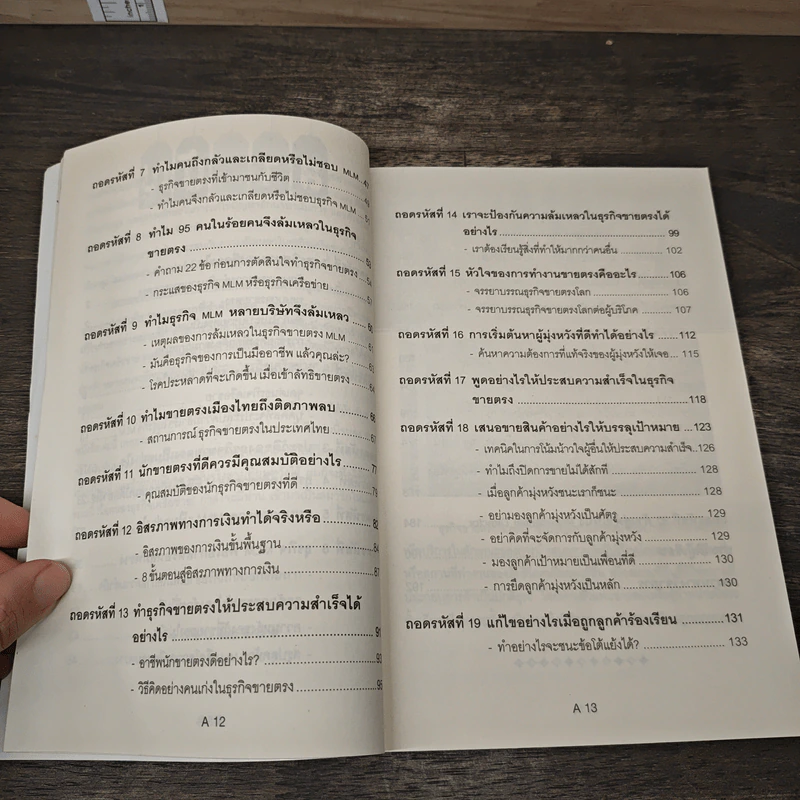 ถอดรหัสที่ 7 ทำไมคนถึงกลัวและเกลียดหรือไม่ชอบ MLM..47
- ธุรกิจขายตรงที่เข้ามาชนกับชีวิต ..................
- ทำไมคนจึงกลัวและเกลียดหรือไม่ชอบธุรกิจ MLM ....
ถอดรหัสที่ 8 ทำไม 95 คนในร้อยคนจึงล้มเหลวในธุรกิจ
ขายตรง ..................................
- คำถาม 22 ข้อ ก่อนการตัดสินใจทำธุรกิจขายตรง ....
- กระแสของธุรกิจ MLM หรือธุรกิจเครือข่าย .........
ถอดรหัสที่ 9 ทำไมธุรกิจ MLM หลายบริษัทจึงล้มเหลว ....
- เหตุผลของการล้มเหลวในธุรกิจขายตรง MLM .......
- มันคือธุรกิจของการเป็นมืออาชีพ แล้วคุณล่ะ? .........
- โรคประหลาดที่จะเกิดขึ้น เมื่อเข้าลัทธิขายตรง .......
ถอดรหัสที่ 10 ทำไมขายตรงเมืองไทยถึงติดภาพลบ ........
- สถานการณ์ ธุรกิจขายตรงในประเทศไทย ...........
ถอดรหัสที่ 11 นักขายตรงที่ดีควรมีคุณสมบัติอย่างไร........77
- คุณสมบัติของนักธุรกิจขายตรงที่ดี ....................79
ถอดรหัสที่ 12 อิสรภาพทางการเงินทำได้จริงหรือ ............82
- อิสรภาพของการเงินขั้นพื้นฐาน ......................84
- 8 ขั้นตอนสู่อิสรภาพทางการเงิน ......................87
ถอดรหัสที่ 13 ทำธุรกิจขายตรงให้ประสบความสำเร็จได้
อย่างไร ..........................................91
- อาชีพนักขายตรงดีอย่างไร? .........................93
- วิธีคิดอย่างคนเก่งในธุรกิจขายตรง ...................96
A 12
ถอดรหัสที่ 14 เราจะป้องกันความล้มเหลวในธุรกิจขายตรงได้
อย่างไร .......................................... 99
- เราต้องเรียนรู้สิ่งที่ทำให้มากกว่าคนอื่น ............ 102
ถอดรหัสที่ 15 หัวใจของการทำงานขายตรงคืออะไร...........106
- จรรยาบรรณธุรกิจขายตรงโลก .................... 106
- จรรยาบรรณธุรกิจขายตรงโลกต่อผู้บริโภค ......... 107
ถอดรหัสที่ 16 การเริ่มต้นหาผู้มุ่งหวังที่ดีทำได้อย่างไร ......112
- ค้นหาความต้องการที่แท้จริงของผู้มุ่งหวังให้เจอ....115
ถอดรหัสที่ 17 พูดอย่างไรให้ประสบความสำเร็จในธุรกิจ
ขายตรง ..........................................118
ถอดรหัสที่ 18 เสนอขายสินค้าอย่างไรให้บรรลุเป้าหมาย ...123
- เทคนิคในการโน้มน้าวใจผู้อื่นให้ประสบความสำเร็จ..126
- ทำไมถึงปิดการขายไม่ได้สักที ..................... 128
- เมื่อลูกค้ามุ่งหวังชนะเราก็ชนะ .................... 128
- อย่ามองลูกค้ามุ่งหวังเป็นศัตรู ..................... 129
- อย่าคิดที่จะจัดการกับลูกค้ามุ่งหวัง ................ 129
- มองลูกค้าเป้าหมายเป็นเพื่อนที่ดี ................. 130
- การยึดลูกค้ามุ่งหวังเป็นหลัก ...................... 130
ถอดรหัสที่ 19 แก้ไขอย่างไรเมื่อถูกลูกค้าร้องเรียน ............131
- ทำอย่างไรจะชนะข้อโต้แย้งได้? .................... 133
A 13